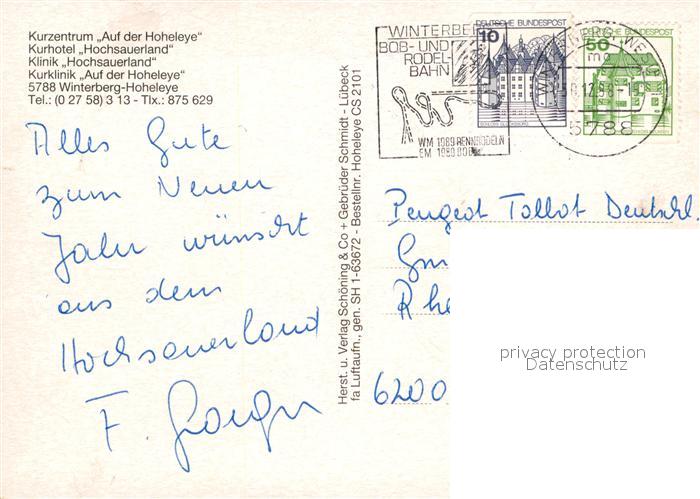 Kurzentrum „Auf der Hoheleye“
Kurhotel „Hochsauerland“
Klinik „Hochsauerland“
Kurklinik „Auf der Hoheleye“
5788 Winterberg-Hoheleye
Tel.: (0 27 58) 3 13 - Tlx.: 875 629
Alles Gute
zum Neuen
Jahr wünscht
aus dem
Hochsauerland
F.
Herst. u. Verlag Schöning & Co + Gebrüder Schmidt - Lübeck
fa Luftaufn., gen. SH 1-63672 - Bestellnr. Hoheleye CS 2101
WINTERBERG
BOB- UND
RODEL-
BAHN
WM 1989 RENNRODELN
EM 1989 BOB
DEUTSCHE BUNDESPOST
10
SCHLOSS GLÜCKSBURG
DEUTSCHE BUNDESPOST
50
5788
Peugeot Talbot Deutschl.
Gm
Rhe
6200
privacy protection
Datenschutz